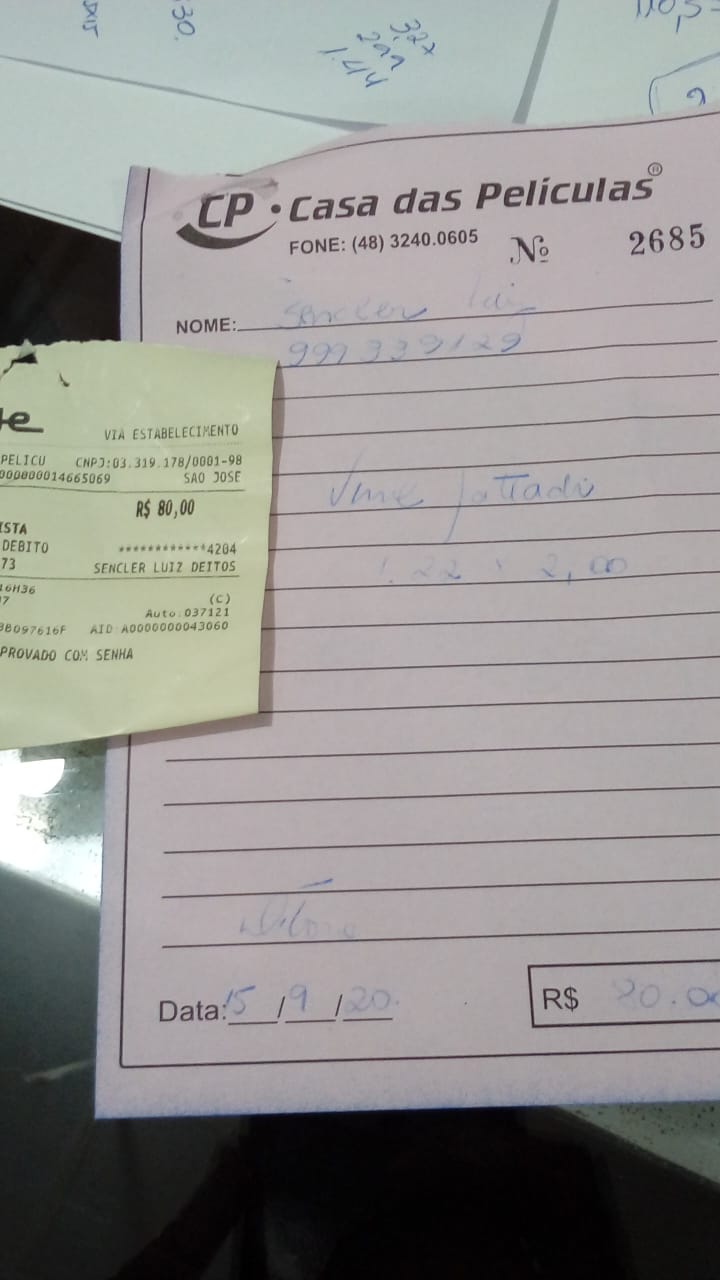 30.
327
299
1.44
CP • Casa das Películas®
FONE: (48) 3240.0605 Nº 2685
NOME: Sencler luiz
999339129
jatiado
1.22 x 2,00
Data: 15/9/20.
R$
VIA ESTABELECIMENTO
PELICU CNPJ:03.319.178/0001-98
000000014665069 SAO JOSE
R$ 80,00
ISTA
DEBITO ************4204
73 SENCLER LUIZ DEITOS
16H36
7 (C)
Auto:037121
8B097616F AID A0000000043060
PROVADO COM SENHA